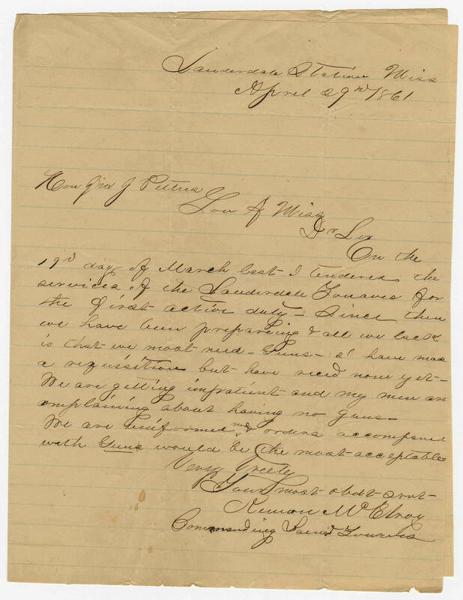 Lauderdale Station Miss
April 29th 1861
Hon Jno J Pettus
Gov of Miss
Dr Sir
On the
19th day of March last I tendered the
services of the Lauderdale Zouaves for
the first active duty - Since then
we have been preparing & all we lack
is that we most need - Guns - I have made
a requisition but have recd none yet -
We are getting impatient and my men are
complaining about having no Guns -
We are uniformed & orders accompanied
with Guns would be the most acceptable
Very Truly
Your most obdt srvt -
McElroy
Commanding Laud Zouaves